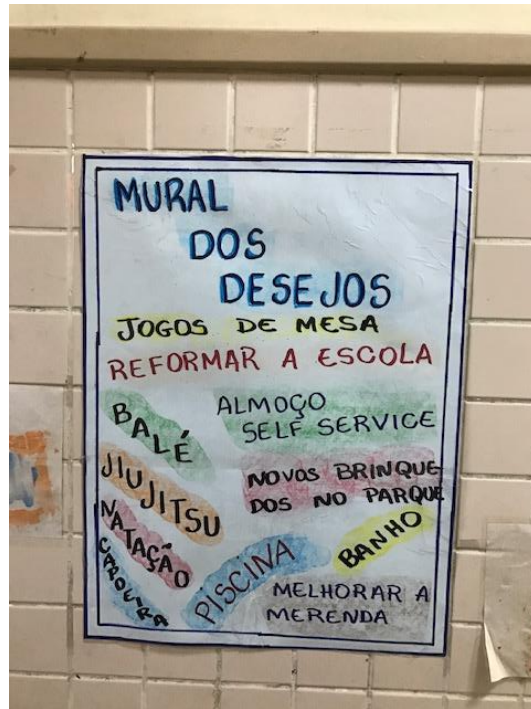 MURAL
DOS
DESEJOS
JOGOS DE MESA
REFORMAR A ESCOLA
BALÉ
ALMOÇO
SELF SERVICE
JIU JITSU
NOVOS BRINQUE
DOS NO PARQUE
NATAÇÃO
CAPOEIRA
PISCINA
BANHO
MELHORAR A
MERENDA